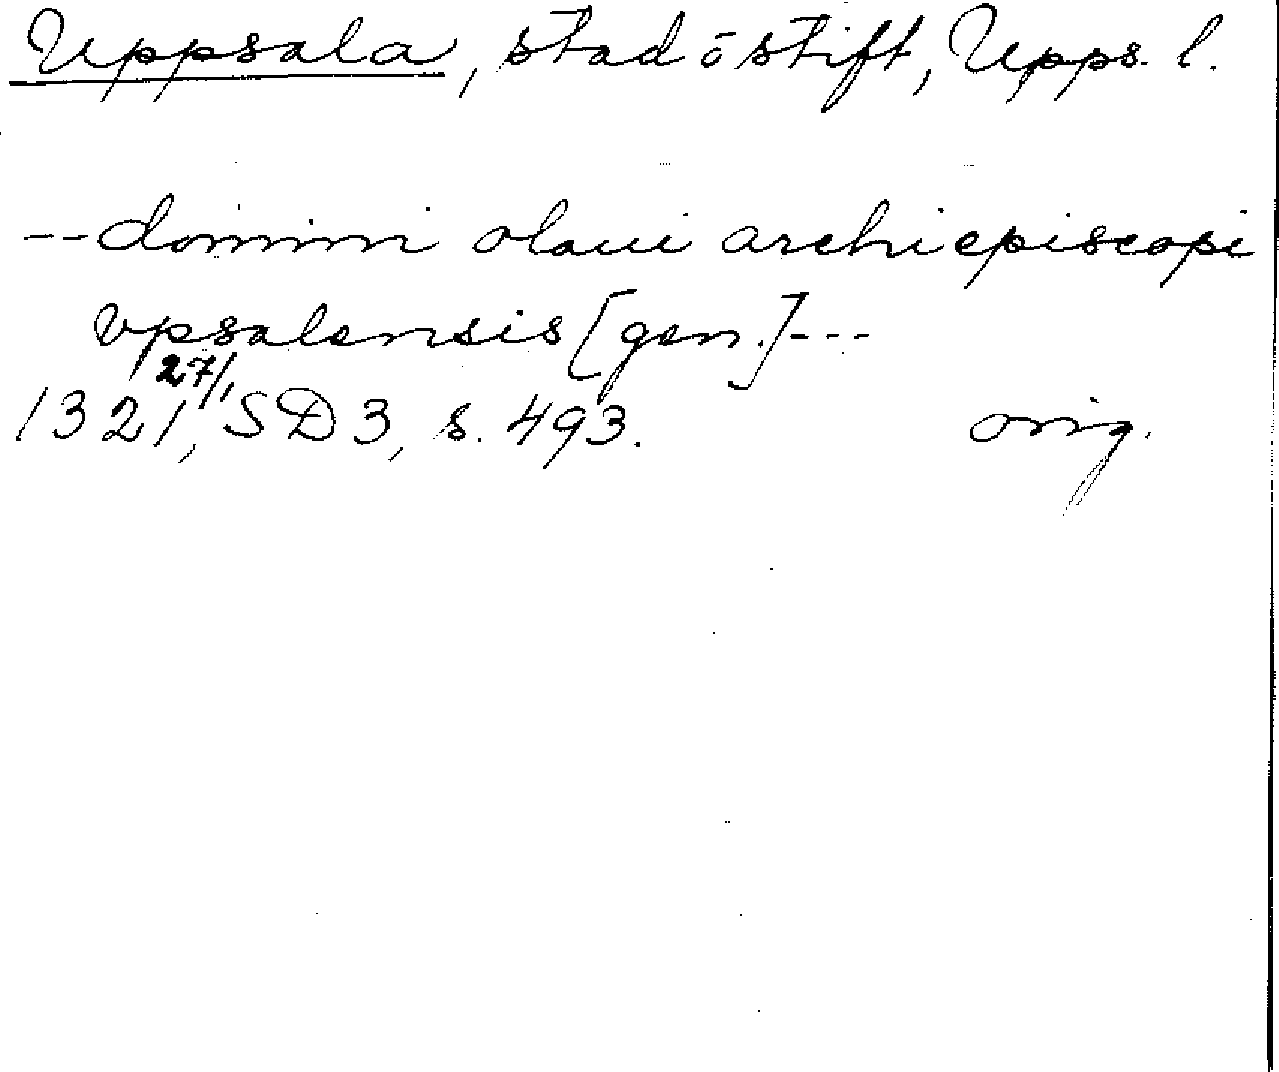 Uppsala, stad ō stift, Upps. l.
-- domini olaui archiepiscopi
vpsalensis [gen.] ---
1321 27/1, SD 3, s. 493. orig.